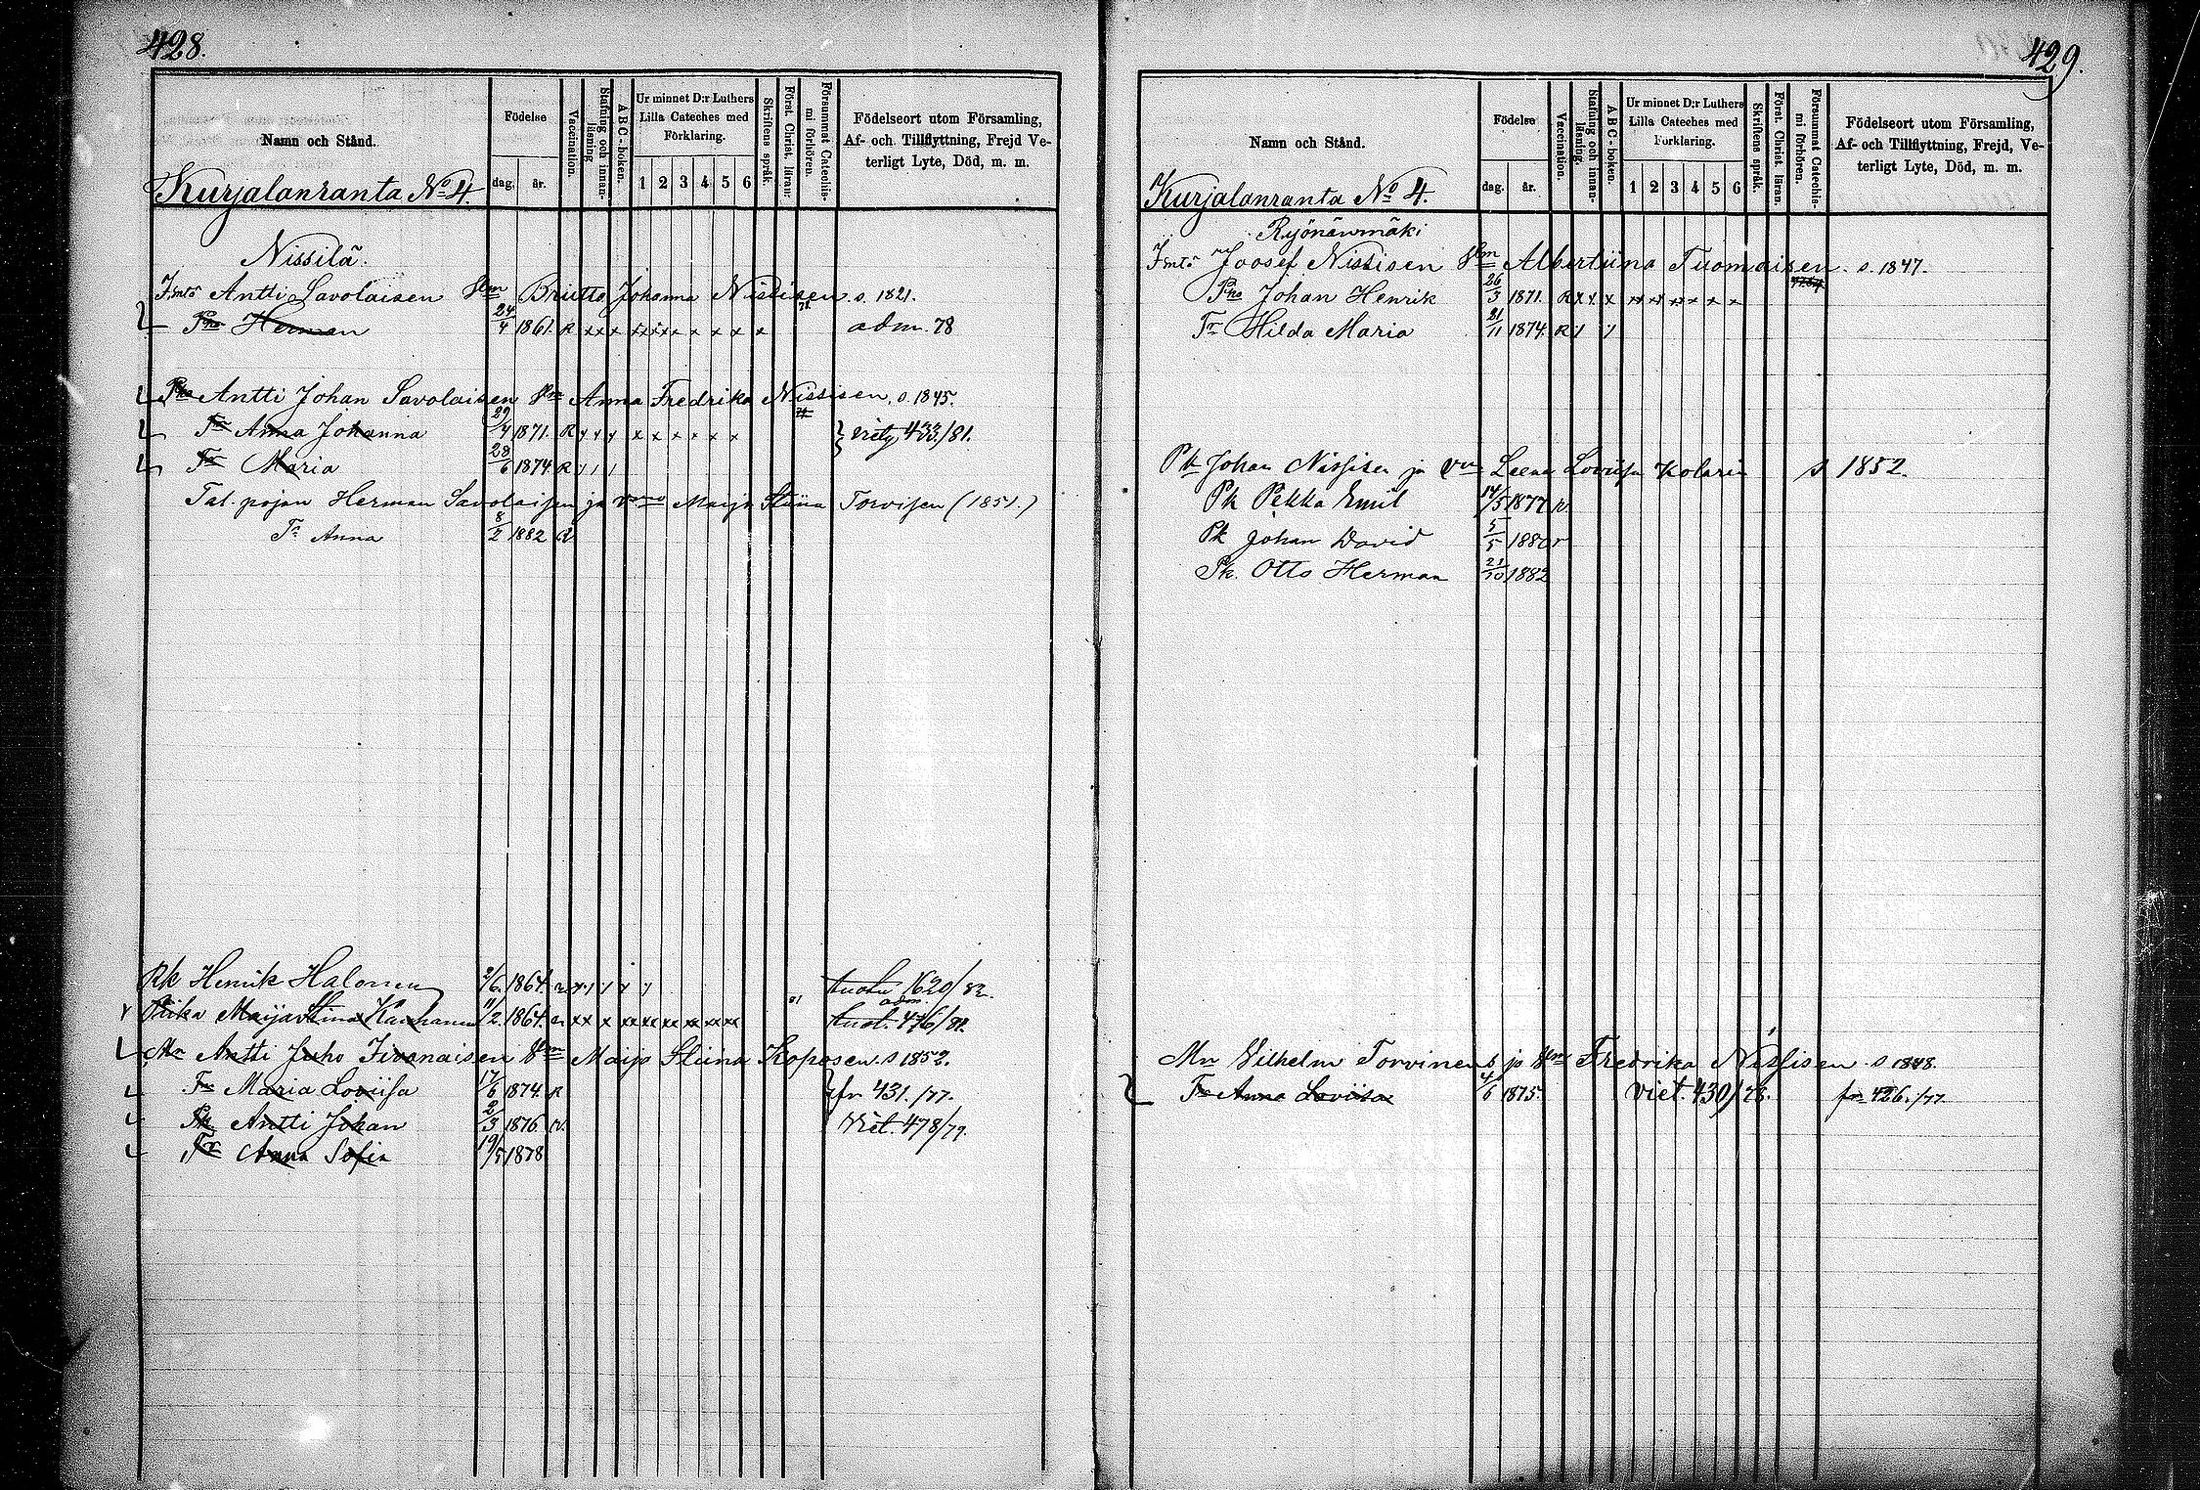 428.
Namn och Stånd.
Födelse
dag.
år.
Vaccination.
Stafning och innan-läsning.
ABC-boken.
Ur minnet D:r Luthers
Lilla Cateches med
Förklaring.
1 2 3 4 5 6
Skriftens språk.
Först. Christ. läran.
Försummat Catechis-mi förhören.
Födelseort utom Församling,
Af- och Tillflyttning, Frejd Ve-
terligt Lyte, Död, m. m.
Kurjalanranta No 4.
Nissilä.
Antti Savolaisen Britta Johanna Nissisen s. 1821.
Herman 24/4 1861. R x x x x x x x x x x x adm. 78
Antti Johan Savolaisen Anna Fredrika Nissisen, s. 1845.
Tr Anna Johanna 29/4 1871. R x x x x x x x x x 433/81.
Tr Maria 28/6 1874 R
Tal. pojan Herman Savolaisen ja Maija Stiina Torvisen (1851.)
Tr Anna 8/2 1882 R
Henrik Halonen 2/6 1864. 1620/82.
adm.
Maija Stiina 11/2 1864. 476/81.
Mn Antti Juho Maija Stiina Koposen s 1852.
Tr Maria Loviisa 17/6 1874. R fr 431./77.
Pk Antti Johan 2/3 1876 R. Viet. 478/79.
Tr Anna Sofia 19/5 1878
429.
Namn och Stånd.
Födelse
dag.
år.
Vaccination.
Stafning och innan-läsning.
ABC-boken.
Ur minnet D:r Luthers
Lilla Cateches med
Förklaring.
1 2 3 4 5 6
Skriftens språk.
Först. Christ. läran.
Försummat Catechis-mi förhören.
Födelseort utom Församling,
Af- och Tillflyttning, Frejd, Ve-
terligt Lyte, Död, m. m.
Kurjalanranta No 4.
Ryönänmäki
Joosef Nissisen Albertiina Tuomaisen. s. 1847.
Johan Henrik 26/3 1871. R x x x x x x x x x
Tr Hilda Maria 21/11 1874. R
Pk Johan Nissisen ja Leena Loviisa Kolarin s 1852.
Pk Pekka Emil 14/5 1877 R.
Pk Johan David 5/5 1880 r
Pk. Otto Herman 21/10 1882
Mn Vilhelm Torvinen ja Fredrika Nissisen s 1848.
Tr Anna Loviisa 4/6 1875. Viet. 430/78. fr 426./77